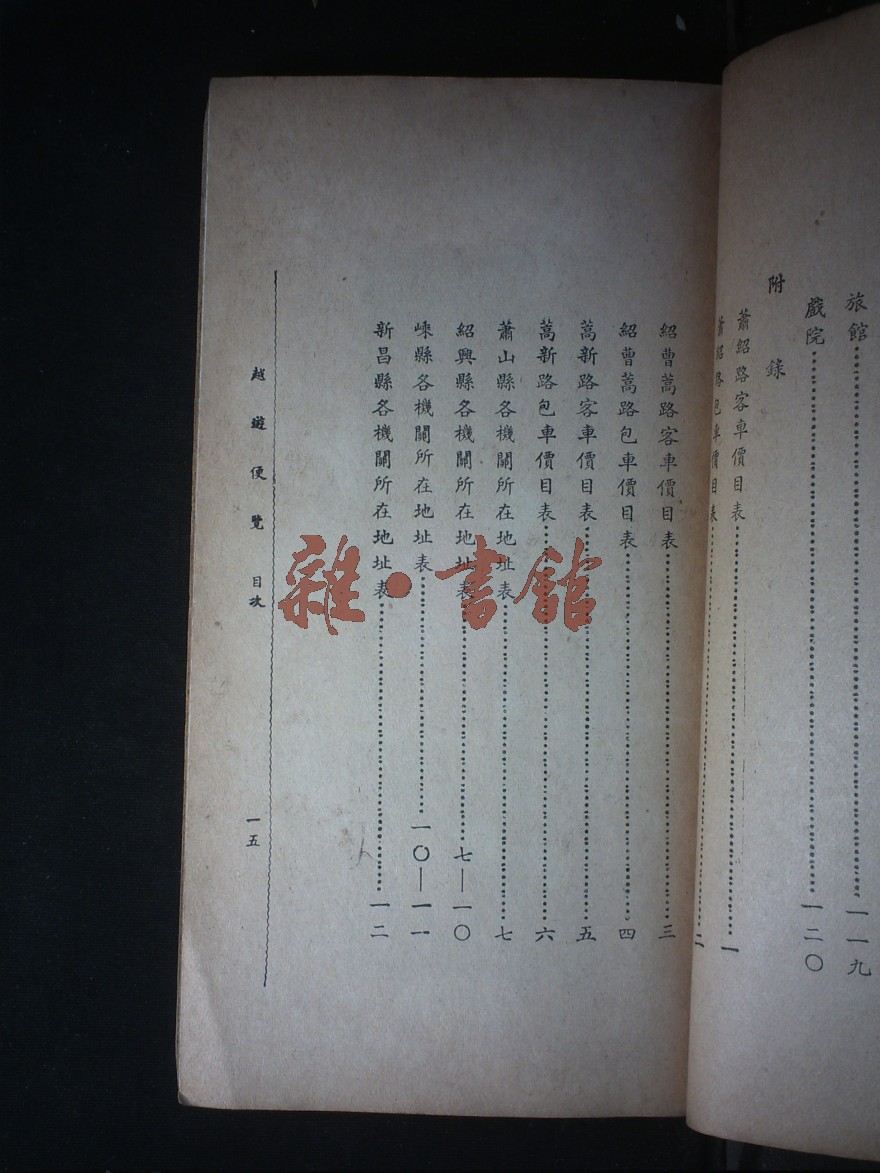 旅館……一一九
戲院……一二〇
附錄
蕭紹路客車價目表……一
蕭紹路包車價目表……二
紹曹蒿路客車價目表……三
紹曹蒿路包車價目表……四
蒿新路客車價目表……五
蒿新路包車價目表……六
蕭山縣各機關所在地址表……七
紹興縣各機關所在地址表……七—一〇
嵊縣各機關所在地址表……一〇—一一
新昌縣各機關所在地址表……一二
越遊便覽 目次 一五
雜·書館